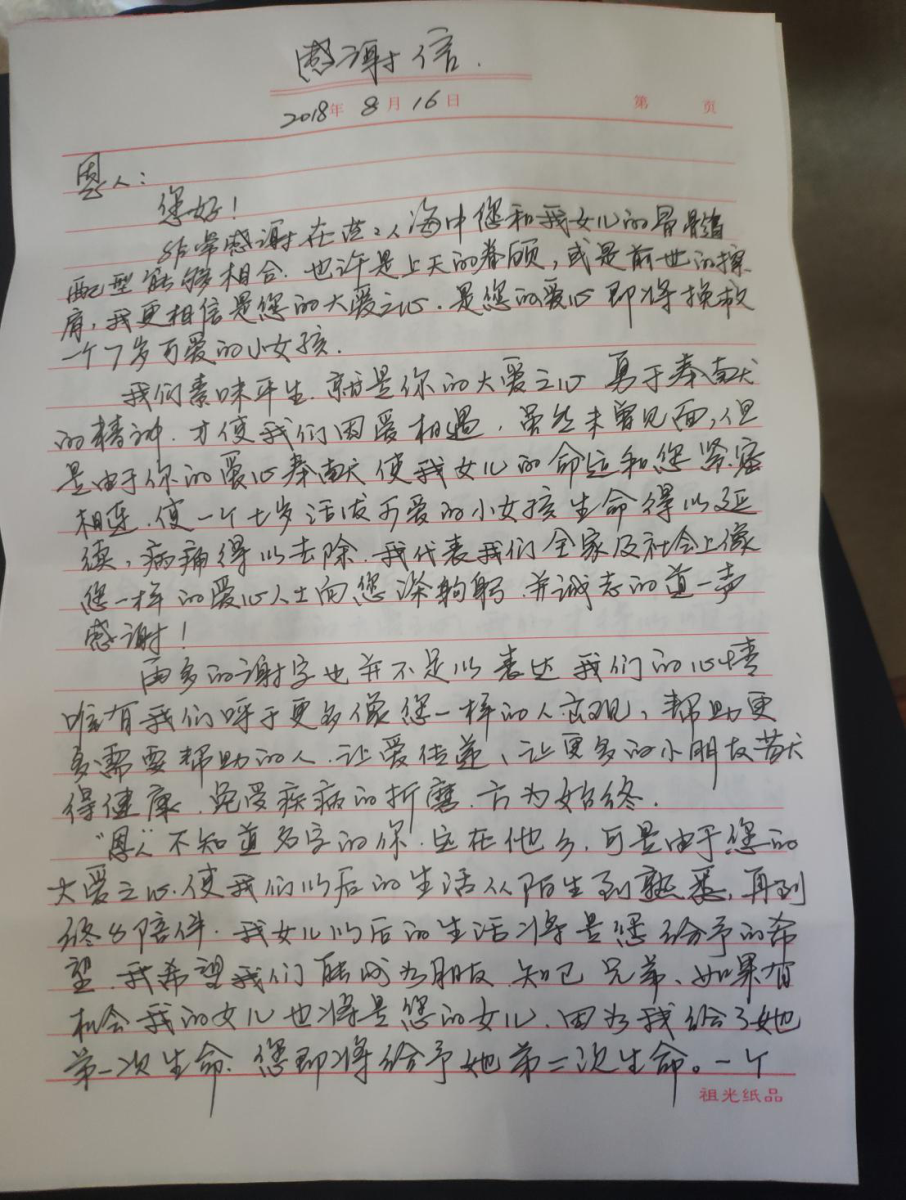 感谢信.
2018年 8月16日 第 页
恩人:
您好!
非常感谢在茫々人海中您和我女儿的骨髓
配型能够相合.也许是上天的眷顾,或是前世的擦
肩,我更相信是您的大爱之心.是您的爱心即将挽救
一个7岁可爱的小女孩.
我们素昧平生.就是你的大爱之心 勇于奉献
的精神.才使我们因爱相遇.虽然未曾见面,但
是由于你的爱心奉献 使我女儿的命运和您紧密
相连.使一个七岁活泼可爱的小女孩生命得以延
续,病痛得以去除.我代表我们全家及社会上像
您一样的爱心人士向您深鞠躬.并诚志的道一声
感谢!
再多的谢字也并不足以表达我们的心情
唯有我们呼于更多像您一样的人出现,帮助更
多需要帮助的人.让爱传递、让更多的小朋友获
得健康.免受疾病的折磨.方为始终.
“恩人”不知道名字的你.远在他乡.可是由于您的
大爱之心.使我们以后的生活从陌生到熟悉,再到
终么陪伴.我女儿以后的生活将是您给予的希
望.我希望我们能成为朋友 知己 兄弟、如果有
机会我的女儿也将是您的女儿.因为我给了她
第一次生命.您即将给予她第二次生命。一个
祖光纸品